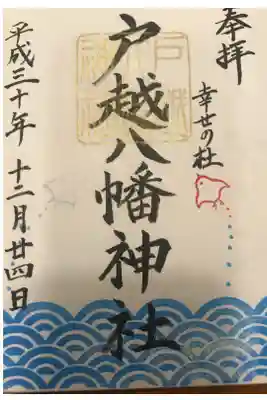 奉拝
幸せの杜
戸越八幡神社
平成三十年 十二月廿四日